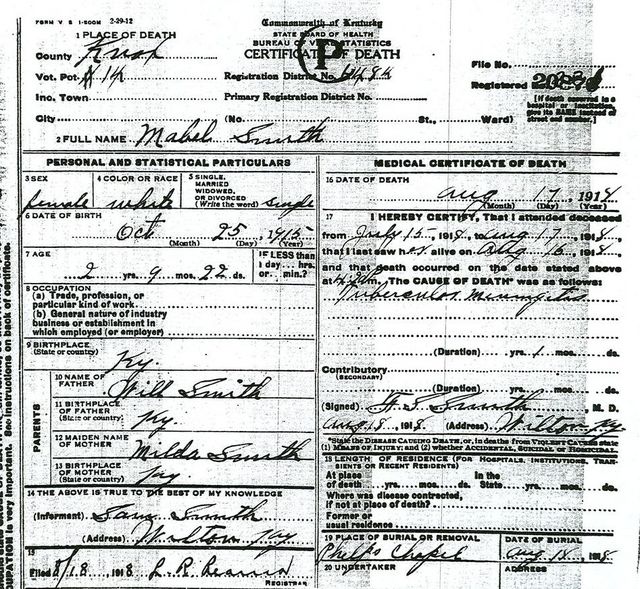 FORM V S 1-500M 2-29-12
Commonwealth of Kentucky
STATE BOARD OF HEALTH
BUREAU OF VITAL STATISTICS
CERTIFICATE OF DEATH
P
1 PLACE OF DEATH
County Knox
Vot. Pct. # 14
Registration District No.
File No.
Registered
Inc. Town
Primary Registration District No.
City (No. St., Ward)
[If death occurred in a hospital or institution, give its NAME instead of street and number.]
2 FULL NAME Mabel Smith
PERSONAL AND STATISTICAL PARTICULARS
3 SEX
female
4 COLOR OR RACE
white
5 SINGLE, MARRIED WIDOWED, OR DIVORCED
(Write the word) single
6 DATE OF BIRTH
Oct 25, 1915
(Month) (Day) (Year)
7 AGE
2 yrs. 9 mos. 22 ds.
IF LESS than 1 day... hrs. or... min.?
8 OCCUPATION
(a) Trade, profession, or
particular kind of work
(b) General nature of industry
business or establishment in
which employed (or employer)
9 BIRTHPLACE
(State or country)
Ky.
PARENTS
10 NAME OF FATHER
Will Smith
11 BIRTHPLACE OF FATHER
(State or country)
Ky.
12 MAIDEN NAME OF MOTHER
Milda Smith
13 BIRTHPLACE OF MOTHER
(State or country)
Ky
14 THE ABOVE IS TRUE TO THE BEST OF MY KNOWLEDGE
(Informant) Sam Smith
(Address) Wilton Ky
15
Filed 8/18, 1918
REGISTRAR
MEDICAL CERTIFICATE OF DEATH
16 DATE OF DEATH
Aug 17, 1918
(Month) (Day) (Year)
17 I HEREBY CERTIFY, That I attended deceased
from July 15, 1918, to Aug 17, 1918,
that I last saw her alive on Aug 16, 1918,
and that death occurred on the date stated above
at m. The CAUSE OF DEATH* was as follows:
Tuberculos Meningitis
(Duration) yrs. 1 mos. ds.
Contributory
(SECONDARY)
(Duration) yrs. mos. ds.
(Signed) Smith, M. D.
Aug 18, 1918 (Address) Wilton, Ky
*State the DISEASE CAUSING DEATH, or, in deaths from VIOLENT CAUSES state
(1) MEANS OF INJURY; and (2) whether ACCIDENTAL, SUICIDAL or HOMICIDAL.
18 LENGTH OF RESIDENCE (FOR HOSPITALS, INSTITUTIONS, TRANSIENTS OR RECENT RESIDENTS)
At place of death yrs. mos. ds. In the State yrs. mos. ds.
Where was disease contracted,
if not at place of death?
Former or
usual residence
19 PLACE OF BURIAL OR REMOVAL
Phelps Chapel
DATE OF BURIAL
Aug 18, 1918
20 UNDERTAKER
ADDRESS
OCCUPATION is very important. See instructions on back of certificate.